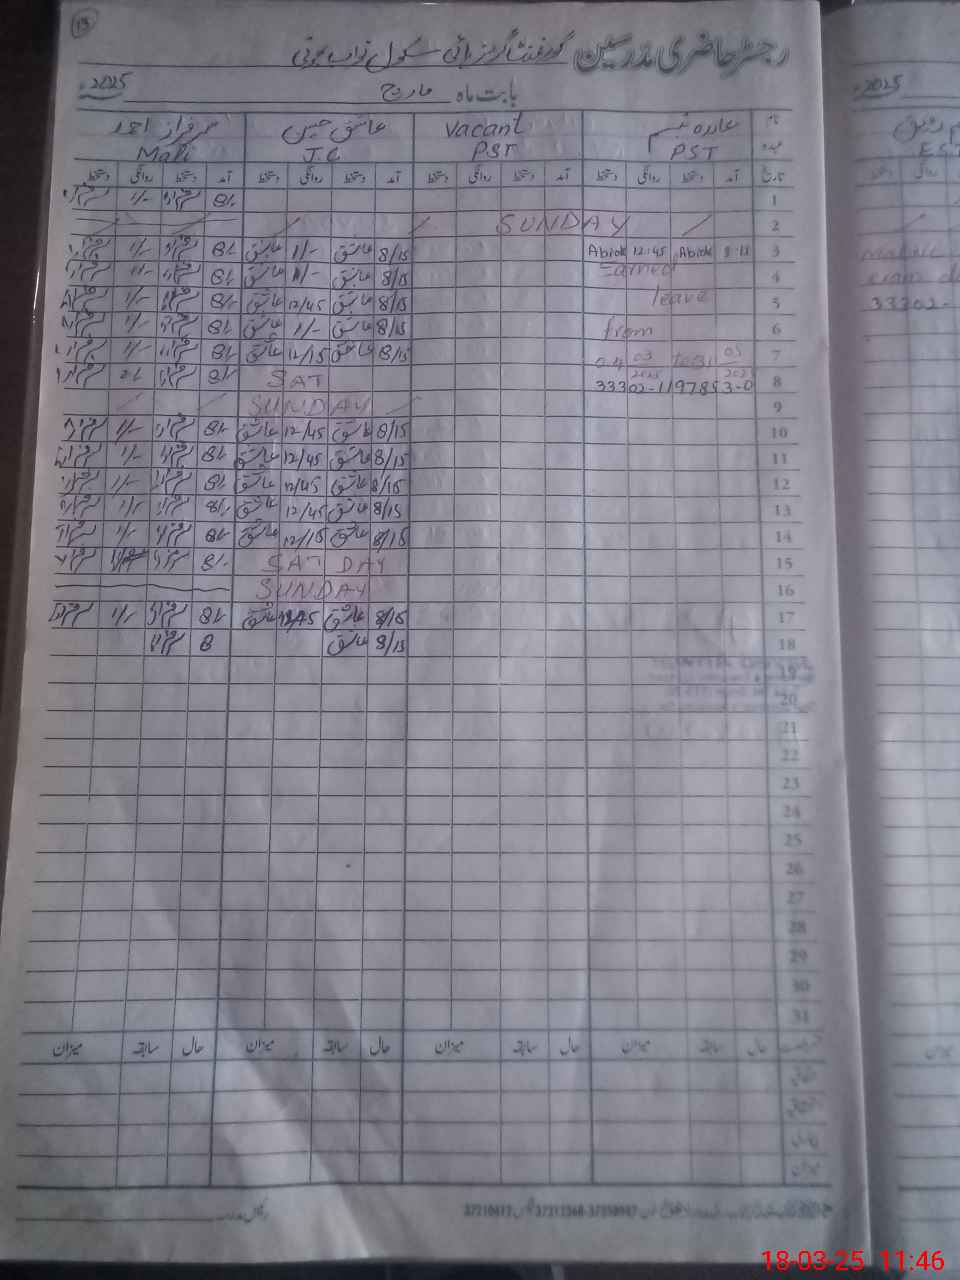 13
رجسٹر حاضری مدرسین گورنمنٹ گرلز ہائی سکول نواب بھوتی
بابت ماہ مارچ 2025ء
نام عابدہ تبسم Vacant عاشق حسین سرفراز احمد
عہدہ PST PST J.C Mali
تاریخ آمد دستخط روانگی دستخط آمد دستخط روانگی دستخط آمد دستخط روانگی دستخط آمد دستخط روانگی دستخط
1 8/- سرفراز 1/- سرفراز
2 SUNDAY
3 8-15 Abida 12:45 Abida 8/15 عاشق 1/- عاشق 8/- سرفراز 1/- سرفراز
4 Earned 8/15 عاشق 1/- عاشق 8/- سرفراز 1/- سرفراز
5 leave 8/15 عاشق 12/45 عاشق 8/- سرفراز 1/- سرفراز
6 from 8/15 عاشق 1/- عاشق 8/- سرفراز 1/- سرفراز
7 04 03 2025 to 31 03 8/15 عاشق 12/15 عاشق 8/- سرفراز 1/- سرفراز
8 SAT 8/- سرفراز سرفراز
9 SUNDAY
10 8/15 عاشق 12/45 عاشق 8/- سرفراز 1/- سرفراز
11 8/15 عاشق 12/45 عاشق 8/- سرفراز 1/- سرفراز
12 8/15 عاشق 12/45 عاشق 8/- سرفراز 1/- سرفراز
13 8/15 عاشق 12/45 عاشق 8/- سرفراز 1/- سرفراز
14 8/15 عاشق 12/15 عاشق 8/- سرفراز 1/- سرفراز
15 SAT DAY 8/- سرفراز سرفراز
16 SUNDAY
17 8/15 عاشق 12/45 عاشق 8/- سرفراز 1/- سرفراز
18 8/15 عاشق 8 سرفراز
19
20
21
22
23
24
25
26
27
28
29
30
31
حال سابقہ میزان حال سابقہ میزان حال سابقہ میزان حال سابقہ میزان
میزان
2025ء
EST
33302-
18-03-25 11:46